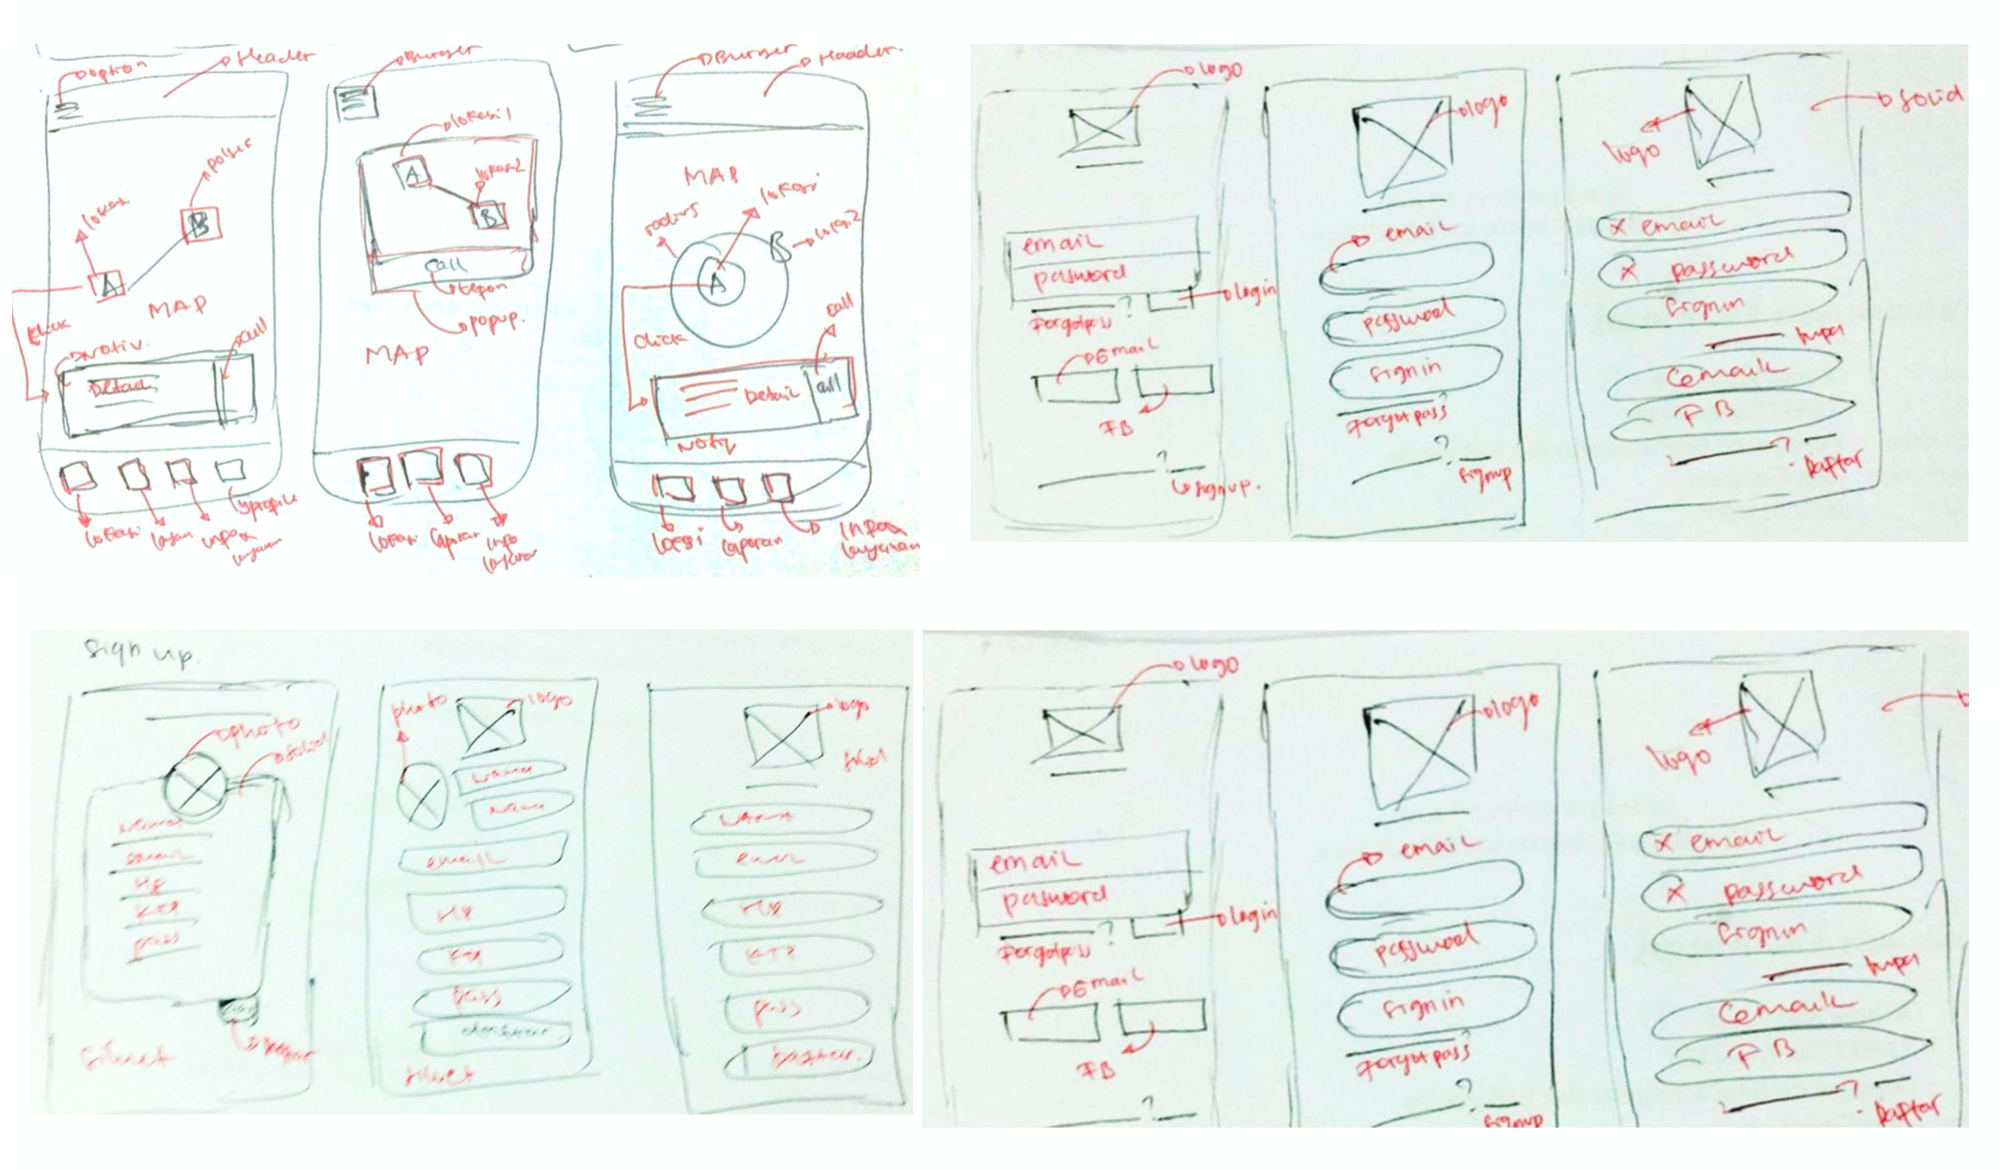 option
Header
polsek
lokasi
B
A
MAP
click
Notiv.
call
Detail
lokasi
profile
Burger
lokasi 1
A
lokasi 2
B
call
popup.
MAP
lokasi
laporan
info
Burger
Header
MAP
radius
lokasi
lokasi 2
B
A
click
call
Detail
call
Notiv
lokasi
laporan
logo
email
password
login
Forgotpass ?
Email
FB
?
signup.
logo
email
password
signin
Forgot pass?
?
signup
solid
logo
x email
x password
signin
lupa
email
FB
?
Daftar
sign up.
photo
solid
Nama
email
HP
KTP
pass
photo
logo
Nama
email
HP
KTP
pass
daftar
logo
solid
Nama
email
HP
KTP
pass
Daftar.
logo
email
password
login
Forgotpass ?
Email
FB
?
logo
email
password
signin
Forgot pass?
?
signup
logo
x email
x password
signin
lupa
email
FB
?
Daftar